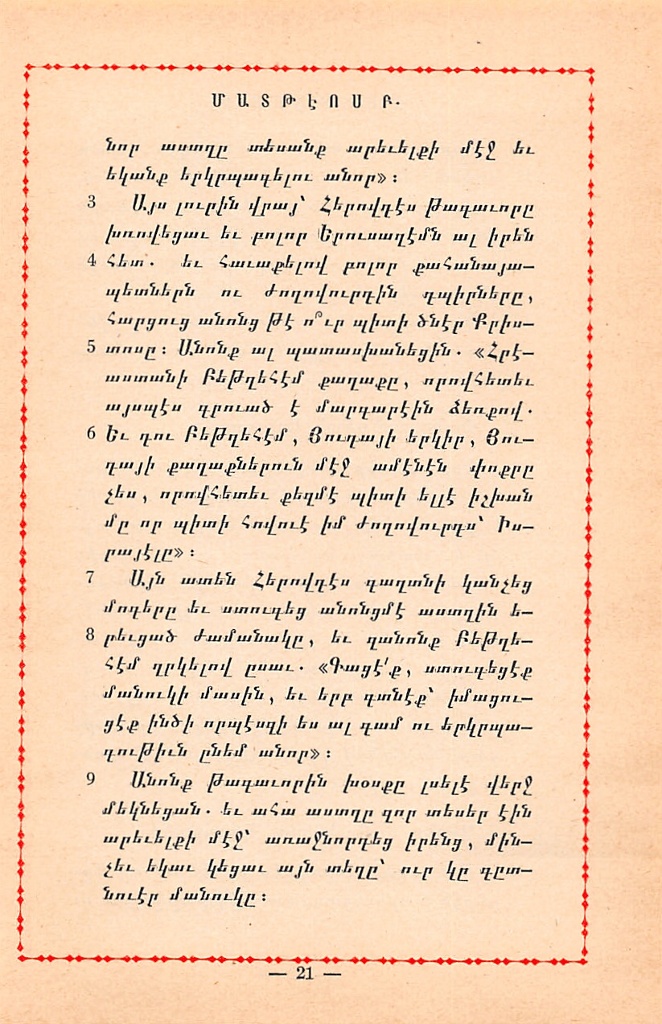 ՄԱՏԹԷՈՍ Բ.
նոր աստղը տեսանք արեւելքի մէջ եւ
եկանք երկրպագելու անոր»։
3 Այս լուրին վրայ՝ Հերովդէս թագաւորը
խռովեցաւ եւ բոլոր Երուսաղէմն ալ իրեն
4 հետ. եւ հաւաքելով բոլոր քահանայա-
պետներն ու ժողովուրդին դպիրները,
հարցուց անոնց թէ ո՞ւր պիտի ծնէր Քրիս-
5 տոսը։ Անոնք ալ պատասխանեցին. «Հրէ-
աստանի Բեթղեհէմ քաղաքը, որովհետեւ
այսպէս գրուած է մարգարէին ձեռքով.
6 Եւ դու Բեթղեհէմ, Յուդայի երկիր, Յու-
դայի քաղաքներուն մէջ ամէնէն փոքրը
չես, որովհետեւ քեզմէ պիտի ելլէ իշխան
մը որ պիտի հովուէ իմ ժողովուրդս՝ Իս-
րայէլը»։
7 Այն ատեն Հերովդէս գաղտնի կանչեց
մոգերը եւ ստուգեց անոնցմէ աստղին ե-
8 րեւցած ժամանակը, եւ զանոնք Բեթղե-
հէմ ղրկելով ըսաւ. «Գացէ՛ք, ստուգեցէք
մանուկի մասին, եւ երբ գտնէք՝ իմացու-
ցէք ինծի որպէսզի ես ալ գամ ու երկրպա-
գութիւն ընեմ անոր»։
9 Անոնք թագաւորին խօսքը լսելէ վերջ
մեկնեցան. եւ ահա աստղը զոր տեսեր էին
արեւելքի մէջ՝ առաջնորդեց իրենց, մին-
չեւ եկաւ կեցաւ այն տեղը՝ ուր կը գըտ-
նուէր մանուկը։
— 21 —